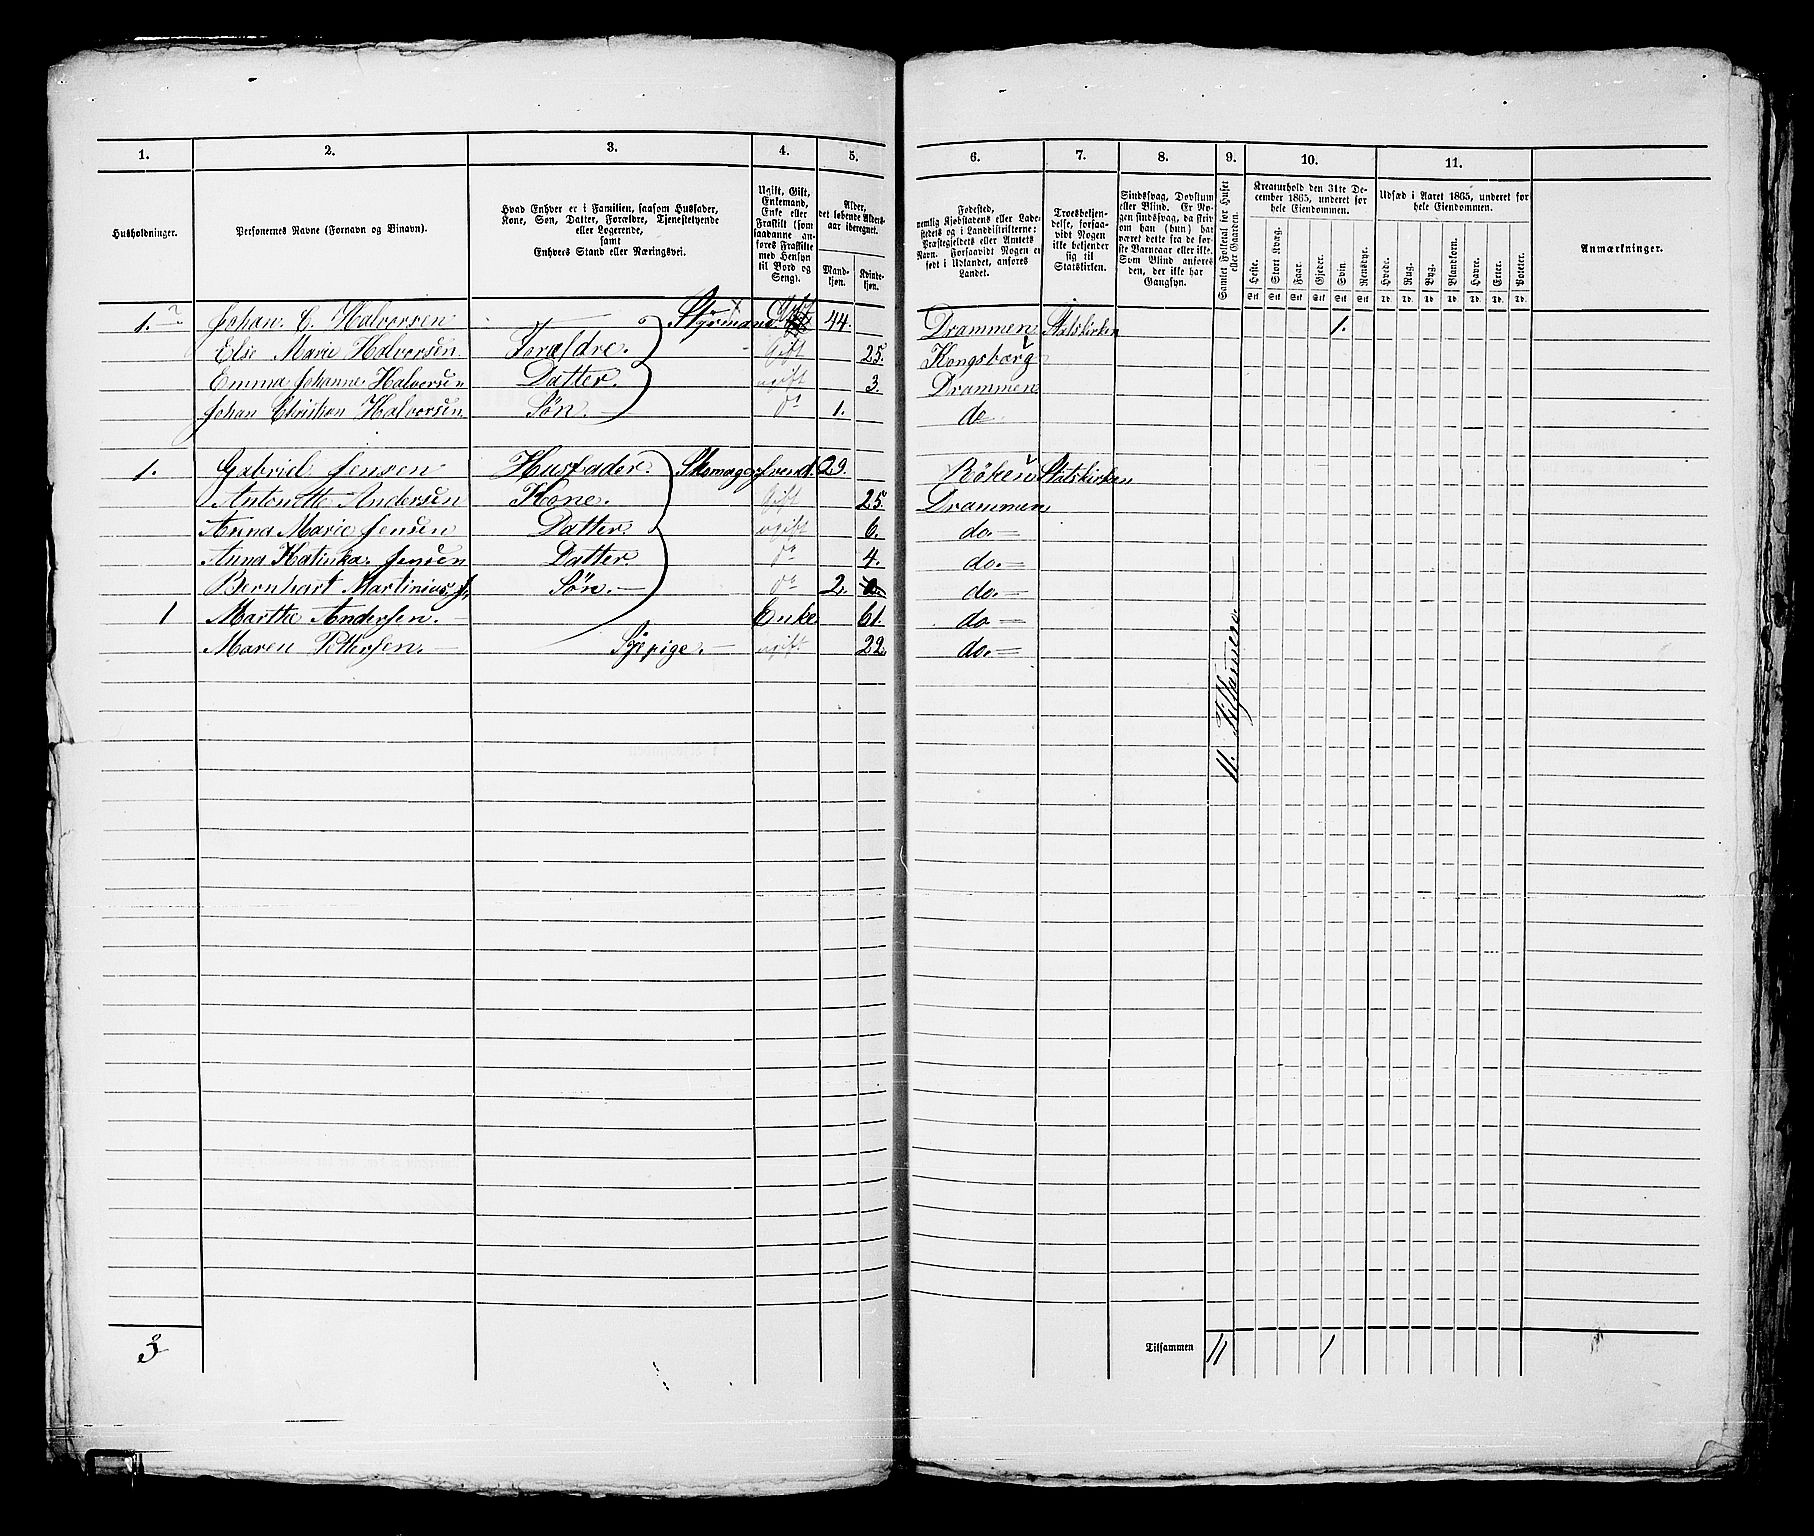 1. 2. 3. 4. 5. 6. 7. 8. 9. 10. 11.
Husholdninger.
Personernes Navne (Fornavn og Binavn).
Hvad Enhver er i Familien, saasom Husfader,
Kone, Søn, Datter, Forældre, Tjenestetyende
eller Logerende,
samt
Enhvers Stand eller Næringsvei.
Ugift, Gift,
Enkemand,
Enke eller
Fraskilt (som
saadanne an-
føres Fraskilte
med Hensyn
til Bord og
Seng).
Alder,
det løbende Alders-
aar iberegnet.
Mand-
kjøn.
Kvinde-
kjøn.
Fødested,
nemlig Kjøbstadens eller Lade-
stedets og i Landdistrikterne:
Præstegjeldets eller Amtets
Navn. Forsaavidt Nogen er
født i Udlandet, anføres
Landet.
Troesbekjen-
delse, forsaa-
vidt Nogen
ikke bekjender
sig til
Statskirken.
Sindssvag, Døvstum
eller Blind. Er No-
gen sindssvag, da skriv
om han (hun) har
været dette fra de før-
ste Barneaar eller ikke.
Som Blind anføres
den, der ikke har
Gangsyn.
Samlet Folketal for Huset
eller Gaarden.
Kreaturhold den 31te De-
cember 1865, underet for
hele Eiendommen.
Heste. Stort Kvæg. Faar. Gjeder. Svin. Rensdyr.
Stk Stk Stk Stk Stk Stk
Udsæd i Aaret 1865, underet for
hele Eiendommen.
Hvede. Rug. Byg. Blandkorn. Havre. Erter. Poteter.
Td. Td. Td. Td. Td. Td. Td.
Anmærkninger.
1. Johan C. Halvorsen Styrmand. Gift 44. Drammen Statskirken 1.
Else Marie Halvorsen Forældre. Gift 25. Kongsberg
Emma Johanne Halvorsen Datter. ugift 3. Drammen
Johan Christian Halvorsen Søn. do 1. do
1. Gabriel Jensen Husfader. Skomagersvend. 29. Röken Statskirken
Antonette Andersen Kone. Gift 25. Drammen
Anna Marie Jensen Datter. ugift 6. do.
Anna Katinka Jensen Datter. do 4. do.
Bernhart Martinius J. Søn. do 2. do.
1 Marthe Andersen. Enke 61. do
Maren Pettersen. Sypige. ugift 22. do.
3 Tilsammen 11 1